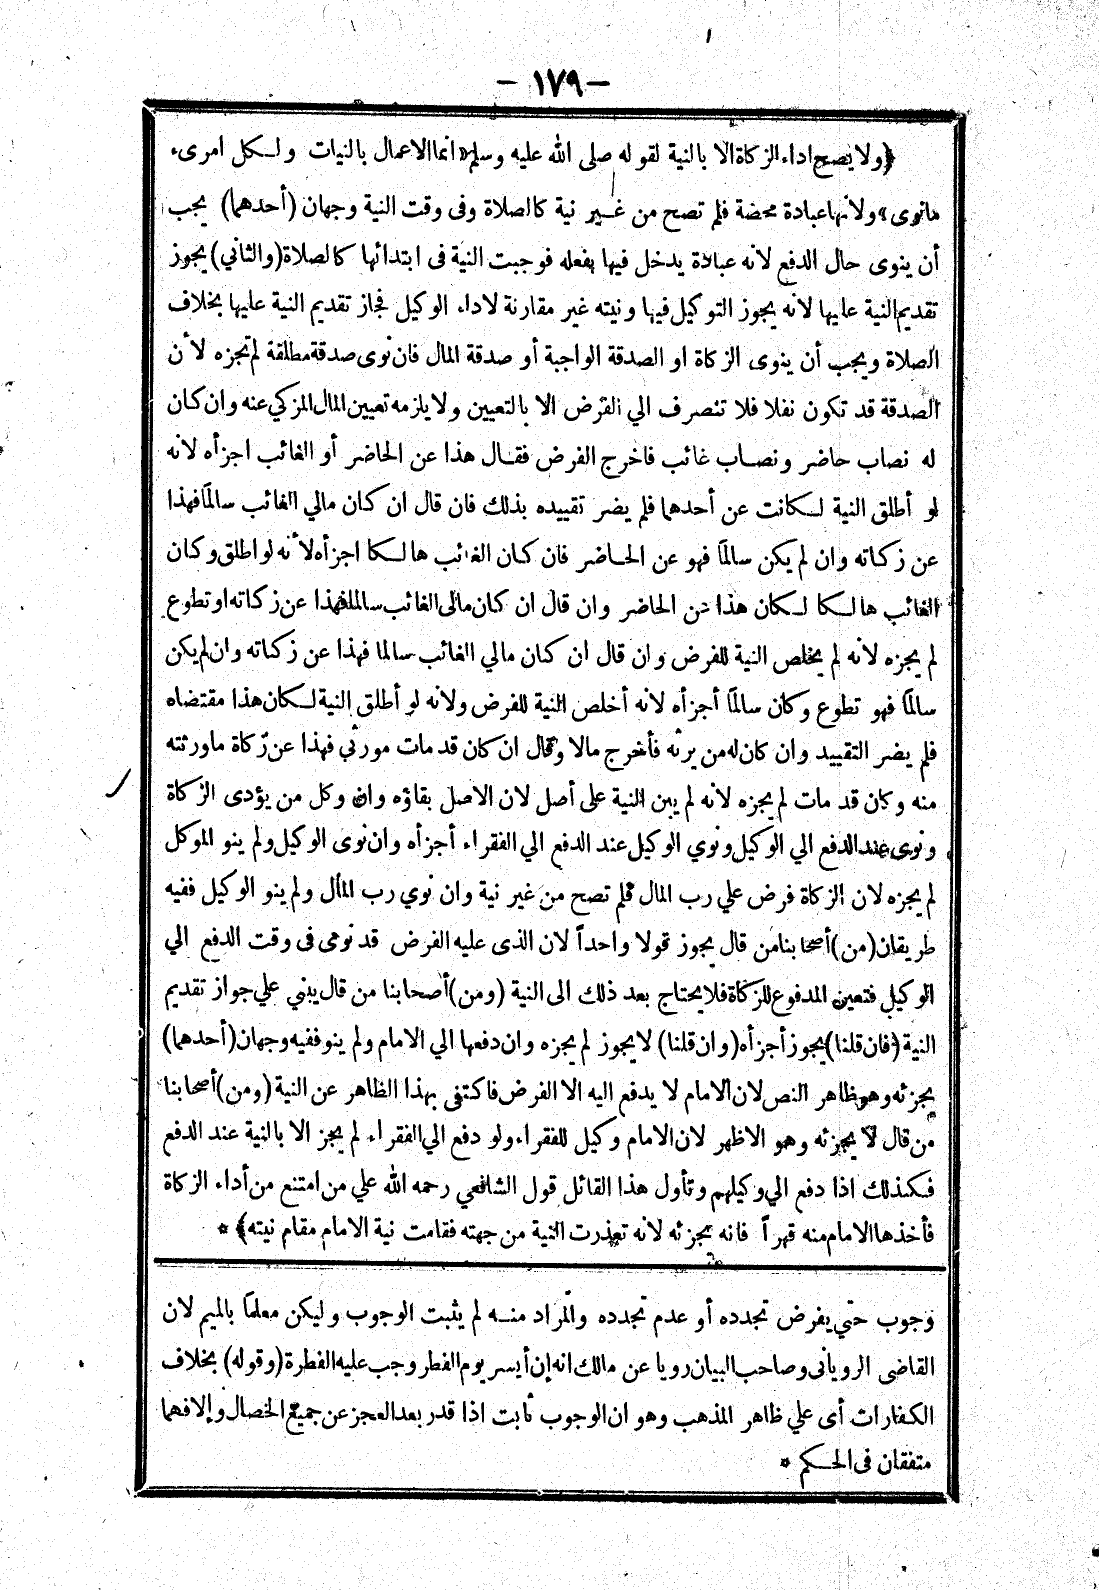 - ١٧٩ -
﴿ولا يصح اداء الزكاة الا بالنية لقوله صلى الله عليه وسلم «انما الاعمال بالنيات ولكل امرىء
مانوى» ولأنها عبادة محضة فلم تصح من غير نية كالصلاة وفى وقت النية وجهان (أحدهما) يجب
أن ينوى حال الدفع لانه عبادة يدخل فيها بفعله فوجبت النية فى ابتدائها كالصلاة (والثاني) يجوز
تقديم النية عليها لانه يجوز التوكيل فيها ونيته غير مقارنة لاداء الوكيل فجاز تقديم النية عليها بخلاف
الصلاة ويجب أن ينوى الزكاة او الصدقة الواجبة أو صدقة المال فان نوى صدقة مطلقة لم تجزه لأن
الصدقة قد تكون نفلا فلا تنصرف الي الفرض الا بالتعيين ولا يلزمه تعيين المال المزكي عنه وان كان
له نصاب حاضر ونصاب غائب فاخرج الفرض فقال هذا عن الحاضر أو الغائب اجزأه لانه
لو أطلق النية لكانت عن أحدهما فلم يضر تقييده بذلك فان قال ان كان مالي الغائب سالماً فهذا
عن زكاته وان لم يكن سالماً فهو عن الحاضر فان كان الغائب هالكا اجزأه لأنه لو اطلق وكان
الغائب هالكا لكان هذا عن الحاضر وان قال ان كان مالى الغائب سالما فهذا عن زكاته او تطوع
لم يجزه لأنه لم يخلص النية للفرض وان قال ان كان مالي الغائب سالما فهذا عن زكاته وان لم يكن
سالماً فهو تطوع وكان سالماً أجزأه لانه أخلص النية للفرض ولانه لو أطلق النية لكان هذا مقتضاه
فلم يضر التقييد وان كان له من يرثه فأخرج مالا وقال ان كان قد مات مورثي فهذا عن زكاة ماورثته
منه وكان قد مات لم يجزه لأنه لم يبن النية على أصل لان الاصل بقاؤه وان وكل من يؤدى الزكاة
ونوى عند الدفع الي الوكيل ونوي الوكيل عند الدفع الي الفقراء أجزأه وان نوى الوكيل ولم ينو الموكل
لم يجزه لان الزكاة فرض علي رب المال فلم تصح من غير نية وان نوي رب المال ولم ينو الوكيل ففيه
طريقان (من) أصحابنا من قال يجوز قولا واحداً لان الذى عليه الفرض قد نوى فى وقت الدفع الي
الوكيل فتعين المدفوع للزكاة فلا يحتاج بعد ذلك الى النية (ومن) أصحابنا من قال يبني علي جواز تقديم
النية (فان قلنا) يجوز أجزأه (وان قلنا) لا يجوز لم يجزه وان دفعها الي الامام ولم ينو ففيه وجهان (أحدهما)
يجزئه وهو ظاهر النص لان الامام لا يدفع اليه الا الفرض فاكتفى بهذا الظاهر عن النية (ومن) أصحابنا
من قال لا يجزئه وهو الاظهر لان الامام وكيل للفقراء ولو دفع الي الفقراء لم يجز الا بالنية عند الدفع
فكذلك اذا دفع الي وكيلهم وتأول هذا القائل قول الشافعي رحمه الله علي من امتنع من أداء الزكاة
فأخذها الامام منه قهراً فانه يجزئه لانه تعذرت النية من جهته فقامت نية الامام مقام نيته﴾ *
وجوب حتي يفرض تجدده أو عدم تجدده والمراد منه لم يثبت الوجوب وليكن معلماً بالميم لان
القاضى الرويانى وصاحب البيان رويا عن مالك انه إن أيسر يوم الفطر وجب عليه الفطرة (وقوله) بخلاف
الكفارات أى علي ظاهر المذهب وهو ان الوجوب ثابت اذا قدر بعد العجز عن جميع الخصال وإلا فهما
متفقان فى الحكم *